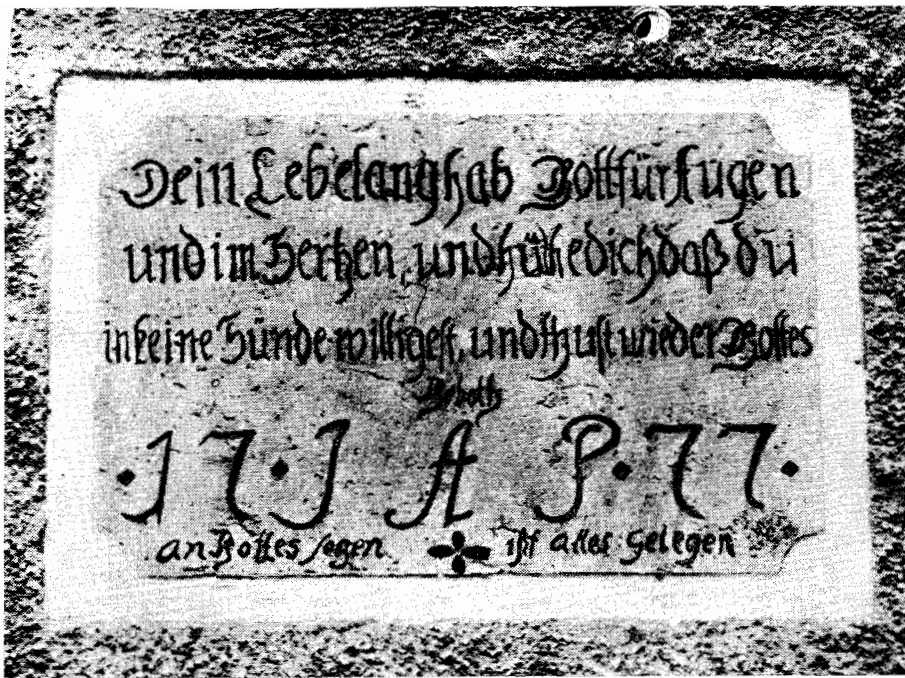 Dein Lebelang hab Gott für Augen
und im Hertzen, und hüthe dich daß du
in keine Sünde willigest, und thust wieder Gottes
Geboth
· 1 7 · J A P · 7 7 ·
an Gottes segen ist alles gelegen